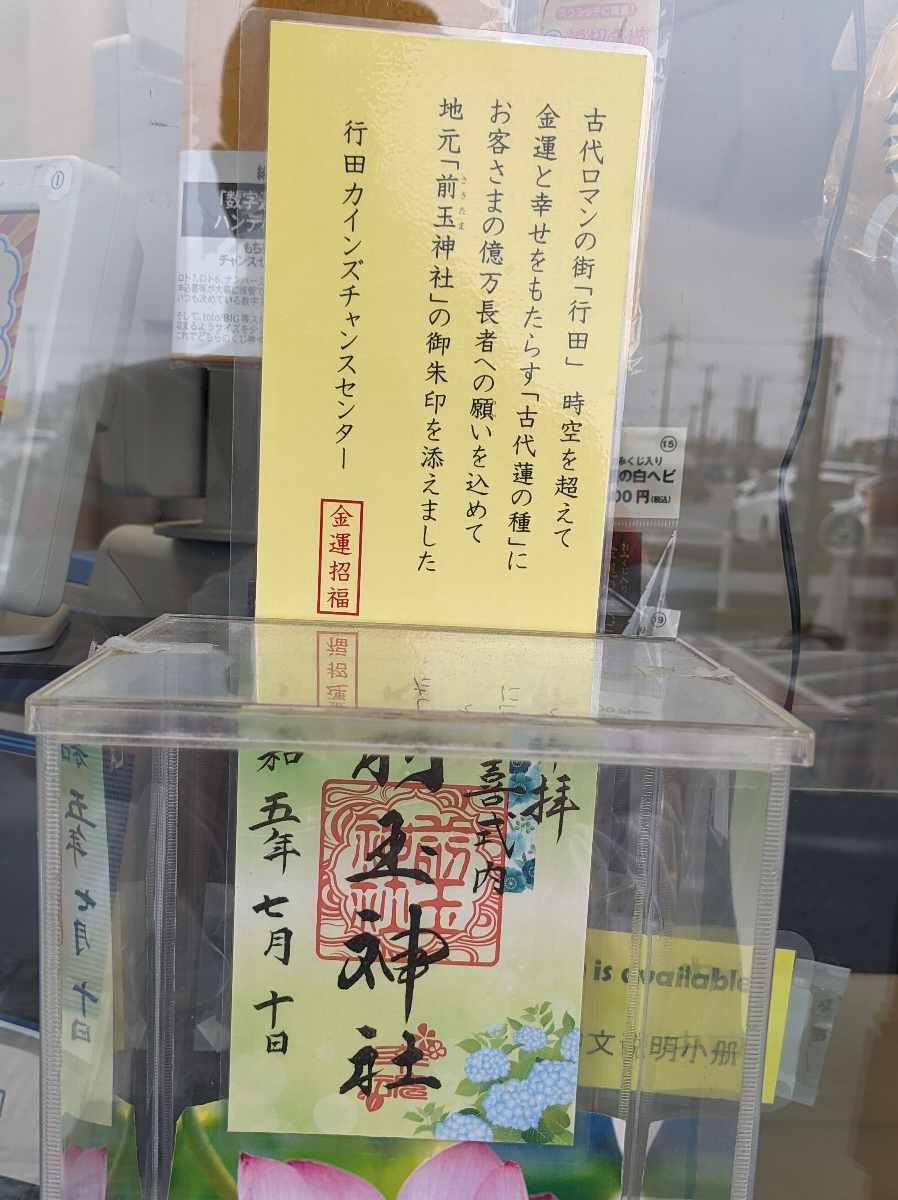 古代ロマンの街「行田」　時空を超えて
金運と幸せをもたらす「古代蓮の種」に
お客さまの億万長者への願いを込めて
地元「前玉神社」の御朱印を添えました
さきたま
行田カインズチャンスセンター
金運招福
①
「数字
ハンデ
もち
チャンスセ
⑮
みくじ入り
の白ヘビ
00円(税込)
拝
喜式内
前玉神社
和五年七月十日
is available
文说明小册